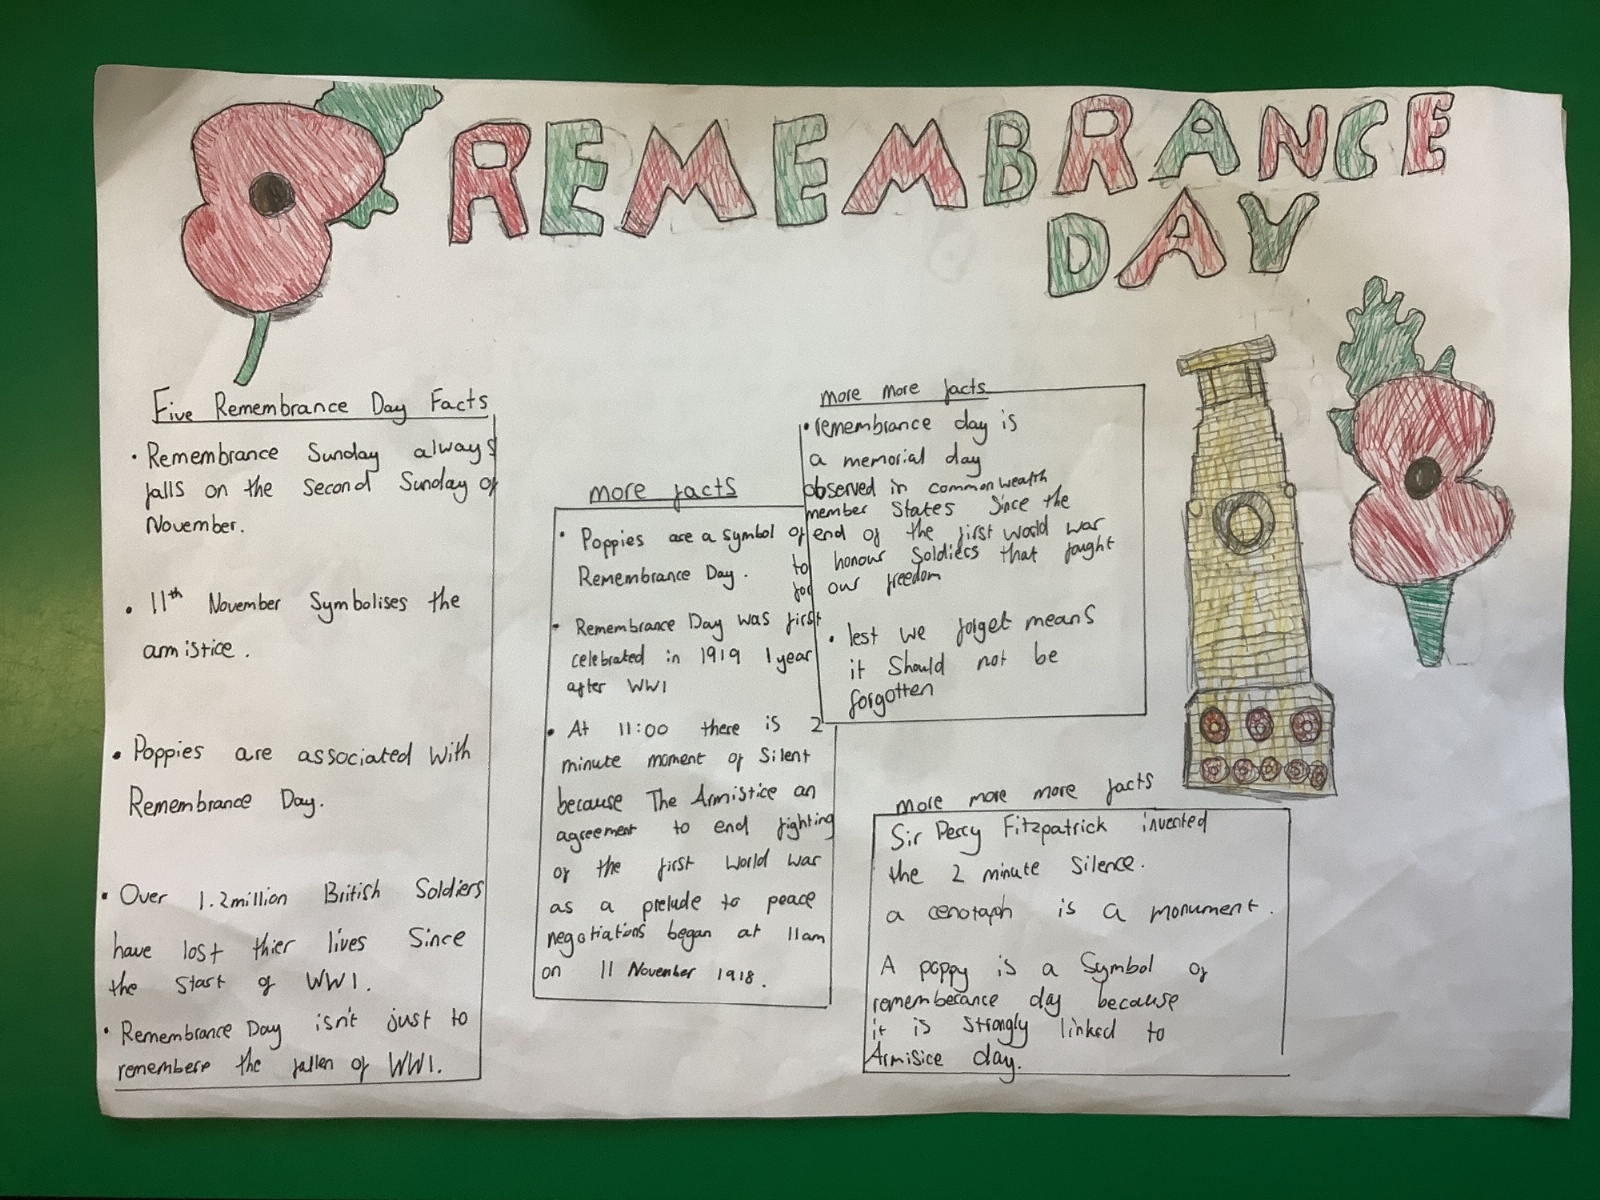 REMEMBRANCE
DAY
Five Remembrance Day Facts
• Remembrance Sunday always
falls on the Second Sunday of
November.
• 11th November Symbolises the
armistice.
• Poppies are associated With
Remembrance Day.
• Over 1.2million British Soldiers
have lost thier lives Since
the Start of WW1.
• Remembrance Day isn't just to
remembere the fallen of WW1.
more facts
• Poppies are a symbol of
Remembrance Day.
• Remembrance Day was first
celebrated in 1919 1 year
after WW1
• At 11:00 there is 2
minute moment of Silent
because The Armistice an
agreement to end fighting
of the first World War
as a prelude to peace
negotiations began at 11am
on 11 November 1918.
more more facts
• remembrance day is
a memorial day
observed in commonwealth
member States Since the
end of the first world war
to honour Soldiers that fought
for our freedom
• lest we forget means
it Should not be
forgotten
more more more facts
Sir Percy Fitzpatrick invented
the 2 minute Silence.
a cenotaph is a monument.
A poppy is a Symbol of
rememberance day because
it is Strongly linked to
Armisice day.